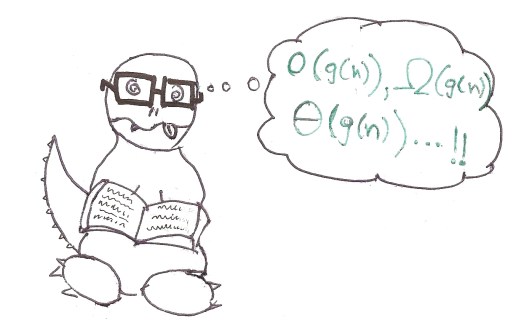 O(g(n)), Ω(g(n))
Θ(g(n))...!!